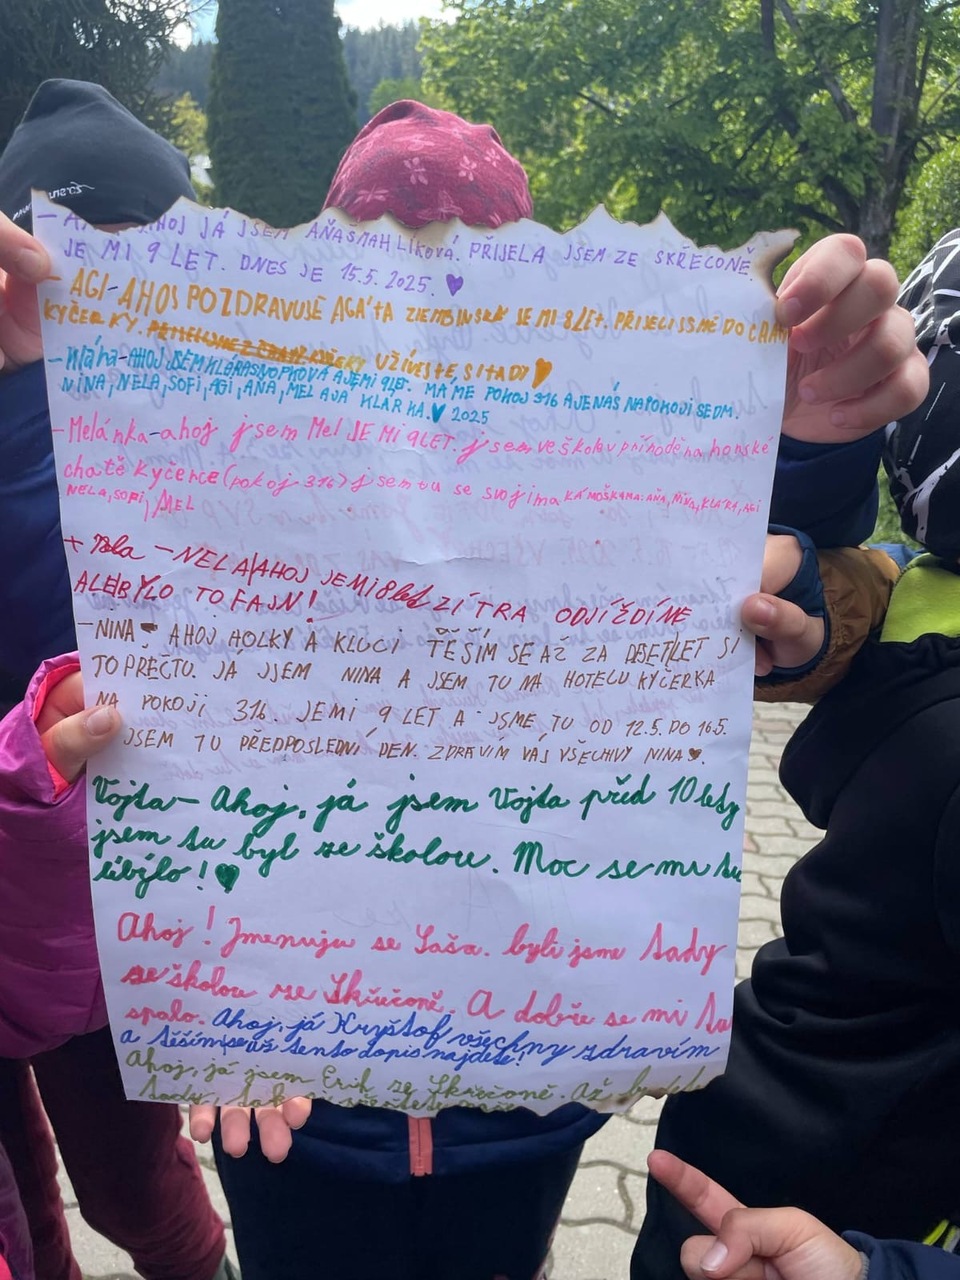 AHOJ JÁ JSEM AŇA SMAHLÍKOVÁ. PŘIJELA JSEM ZE SKŘEČONĚ.
JE MI 9 LET. DNES JE 15.5. 2025. ♥
- AGI-AHOJ POZDRAVUJE AGÁTA JE MI 8 LET. PŘIJELI JSME DO
KYČERKY. UŽÍVEJTE SI TADY ♥
- Klára-AHOJ JSEM KLÁRA SNOPKOVÁ A JE MI 9 LET. MÁME POKOJ 316 A JE NÁS NA POKOJI SEDM.
NINA, NELA, SOFI, AGI, AŇA, MEL A JÁ KLÁRKA.♥ 2025
- Melánka-ahoj jsem Mel JE MI 9 LET. jsem ve školv přírodě na horské
chatě kyčerce (pokoj 316) jsem tu se svojima KÁMOŠKAMA: AŇA, NINA, KLÁRA, AGI
NELA, SOFI, MEL
+ - NELA AHOJ JE MI 8 let ZÍTRA ODJÍŽDÍME
ALE BYLO TO FAJN!
- NINA ♥ AHOJ HOLKY A KLUCI TĚŠÍM SE AŽ ZA DESET LET SI
TO PŘEČTU. JÁ JSEM NINA A JSEM TU NA HOTELU KYČERKA
NA POKOJI 316. JE MI 9 LET A JSME TU OD 12.5. DO 16.5.
JSEM TU PŘEDPOSLEDNÍ DEN. ZDRAVÍM VÁS VŠECHNY NINA ♥.
Vojta - Ahoj, já jsem Vojta před 10 lety
jsem tu byl ze školou. Moc se mi tu
líbilo! ♥
Ahoj! Jmenuju se Saša. byli jsme tady
se školou ze Skřečoně. A dobře se mi tu
spalo. Ahoj, já Kryštof všechny zdravím
a těším se až tento dopis najdete!
Ahoj, já jsem Erik ze Skřečoně. Až budete
tady, tak si